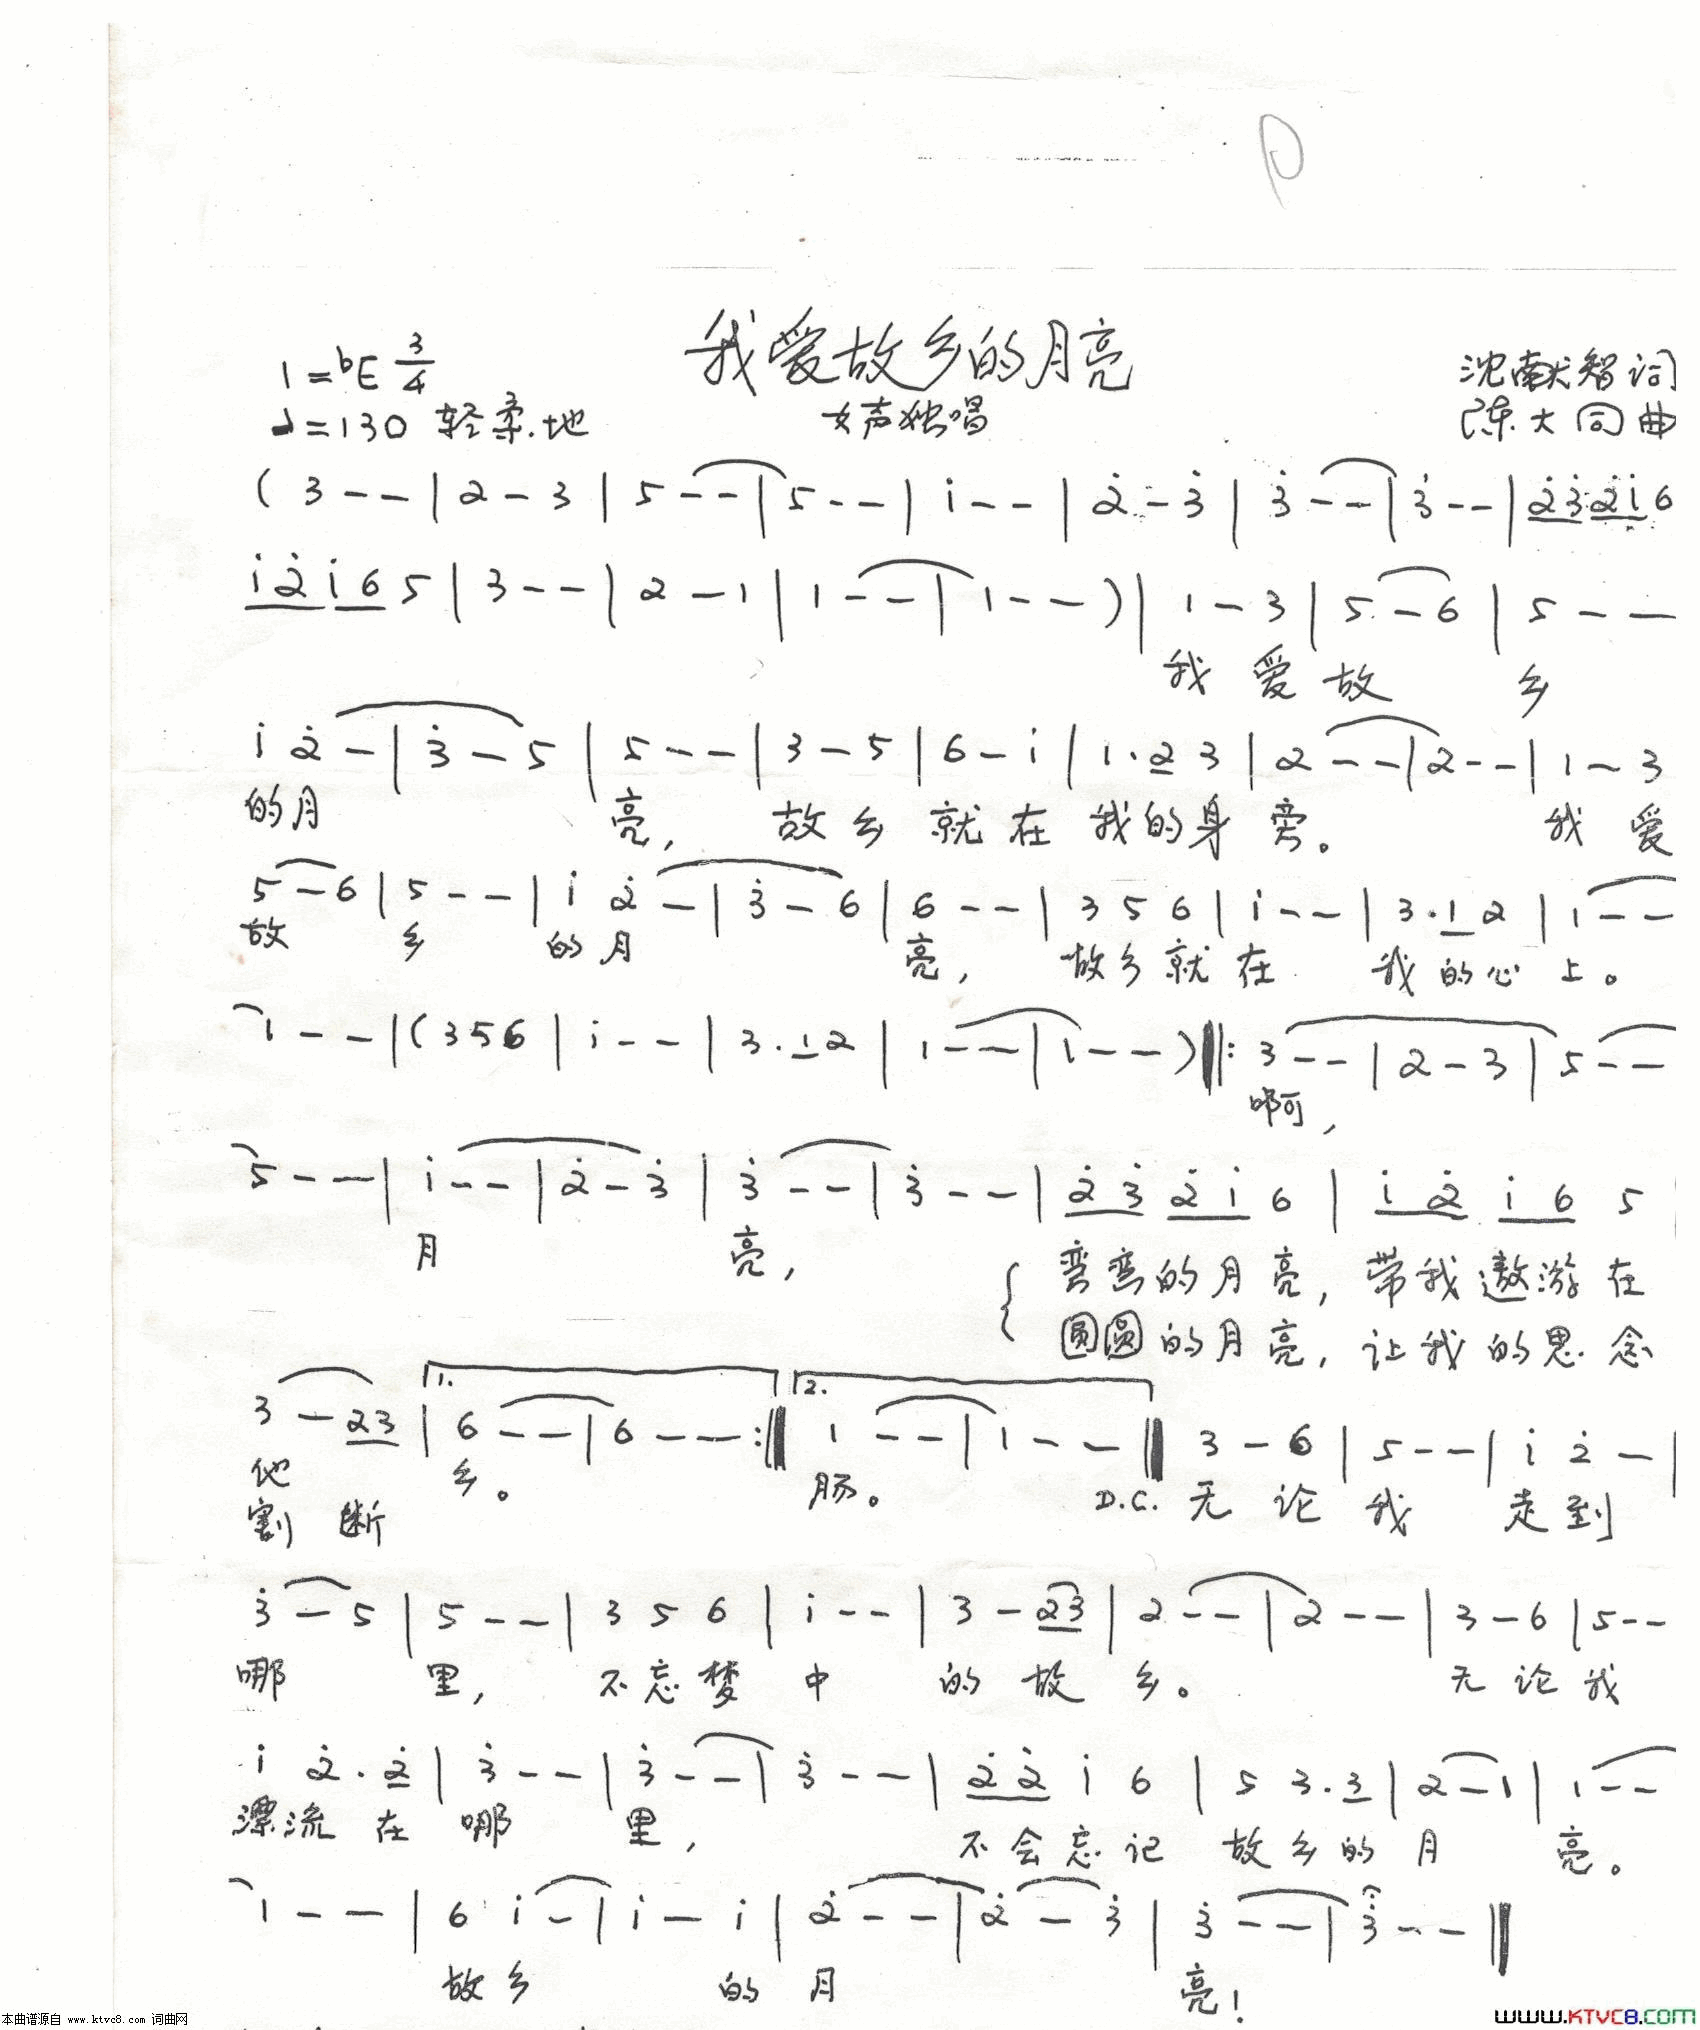 我爱故乡的月亮
1=bE 3/4
沈献智词
♩=130 轻柔地
女声独唱
陈大同曲
( 3 - - | 2 - 3 | 5 - - | 5 - - | i - - | 2̇ - 3̇ | 3̇ - - | 3̇ - - | 2̇3̇ 2̇i 6
i2̇ i6 5 | 3 - - | 2 - 1 | 1 - - | 1 - - ) | 1 - 3 | 5 - 6 | 5 - -
我 爱 故 乡
i 2̇ - | 3̇ - 5 | 5 - - | 3 - 5 | 6 - i | 1. 2 3 | 2 - - | 2 - - | 1 - 3
的月 亮, 故乡 就在 我的身 旁。 我 爱
5 - 6 | 5 - - | i 2̇ - | 3̇ - 6 | 6 - - | 3 5 6 | i - - | 3. 1 2 | 1 - -
故 乡 的月 亮, 故乡就在 我的心 上。
1 - - | ( 3 5 6 | i - - | 3. 1 2 | 1 - - | 1 - - ) ‖: 3 - - | 2 - 3 | 5 - -
啊,
5 - - | i - - | 2̇ - 3̇ | 3̇ - - | 3̇ - - | 2̇3̇ 2̇i 6 | i2̇ i6 5
月 亮, 弯弯的月亮, 带我遨游在
圆圆的月亮, 让我的思念
1. 2.
3 - 23 | 6 - - | 6 - - :‖ 1 - - | 1 - - ‖ 3 - 6 | 5 - - | i 2̇ - |
他 乡。 肠。 D.C. 无 论 我 走到
割 断
3̇ - 5 | 5 - - | 3 5 6 | i - - | 3 - 23 | 2 - - | 2 - - | 3 - 6 | 5 - -
哪 里, 不忘梦 中 的 故 乡。 无论我
i 2̇. 2̇ | 3̇ - - | 3̇ - - | 3̇ - - | 2̇2̇ i 6 | 5 3. 3 | 2 - 1 | 1 - -
漂流 在 哪 里, 不会忘记 故乡的 月 亮。
1 - - | 6 i - | i - i | 2̇ - - | 2̇ - 3̇ | 3̇ - - | 3̇ - - ‖
故乡 的 月 亮!
本曲谱源自 www.ktvc8.com 词曲网
www.KTVC8.com